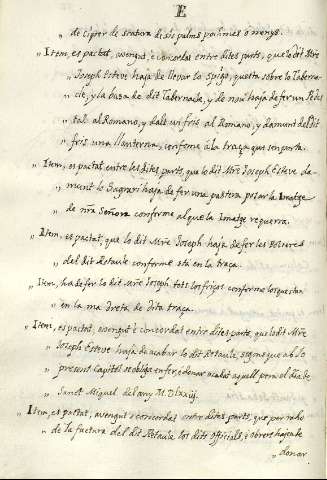 E
„ de ciper de statura di sis palms poc mes o menys.
„ Item, es pactat, avengut, e concordat entre dites parts, que lo dit Mre
„ Joseph Esteve haja de llevar lo Spiga, questa sobre lo Taberna-
„ cle, y la basa de dit Tabernacle, y de nou haja de fer un Pedes
„ tal al Romano, y dalt un fris al Romano, y damunt del dit
„ fris una llanterna, conforme â la traça que sen porta.
„ Item, es pactat, entre les dites parts, que lo dit Mre Joseph Esteve da-
„ munt lo Sagrari haja de fer una pastera posar la Imatge
„ de nra Señora conforme al que la Imatge requerra.
„ Item, es pactat, que lo dit Mre Joseph haja de fer les
„ del dit Retaule conforme stá en la traça.
„ Item, ha de fer lo dit Mre Joseph tots los frisos conforme los que stan
„ en la ma dreta de dita traça.
„ Item, es pactat, avengut è concordat entre dites parts, que lo dit Mre
„ Joseph Esteve haja de acabar lo dit Retaule, segons que ab lo
„ present Capitol se obliga en fer, è donar acabat aquell pera el dia de
„ Sanct Miquel del any M.Dlxxiij.
„ Item, es pactat, avengut è concordat entre dites parts, que per raho
„ de la factura del dit Retaule los dits officials, è obrers hajen de
„ donar.